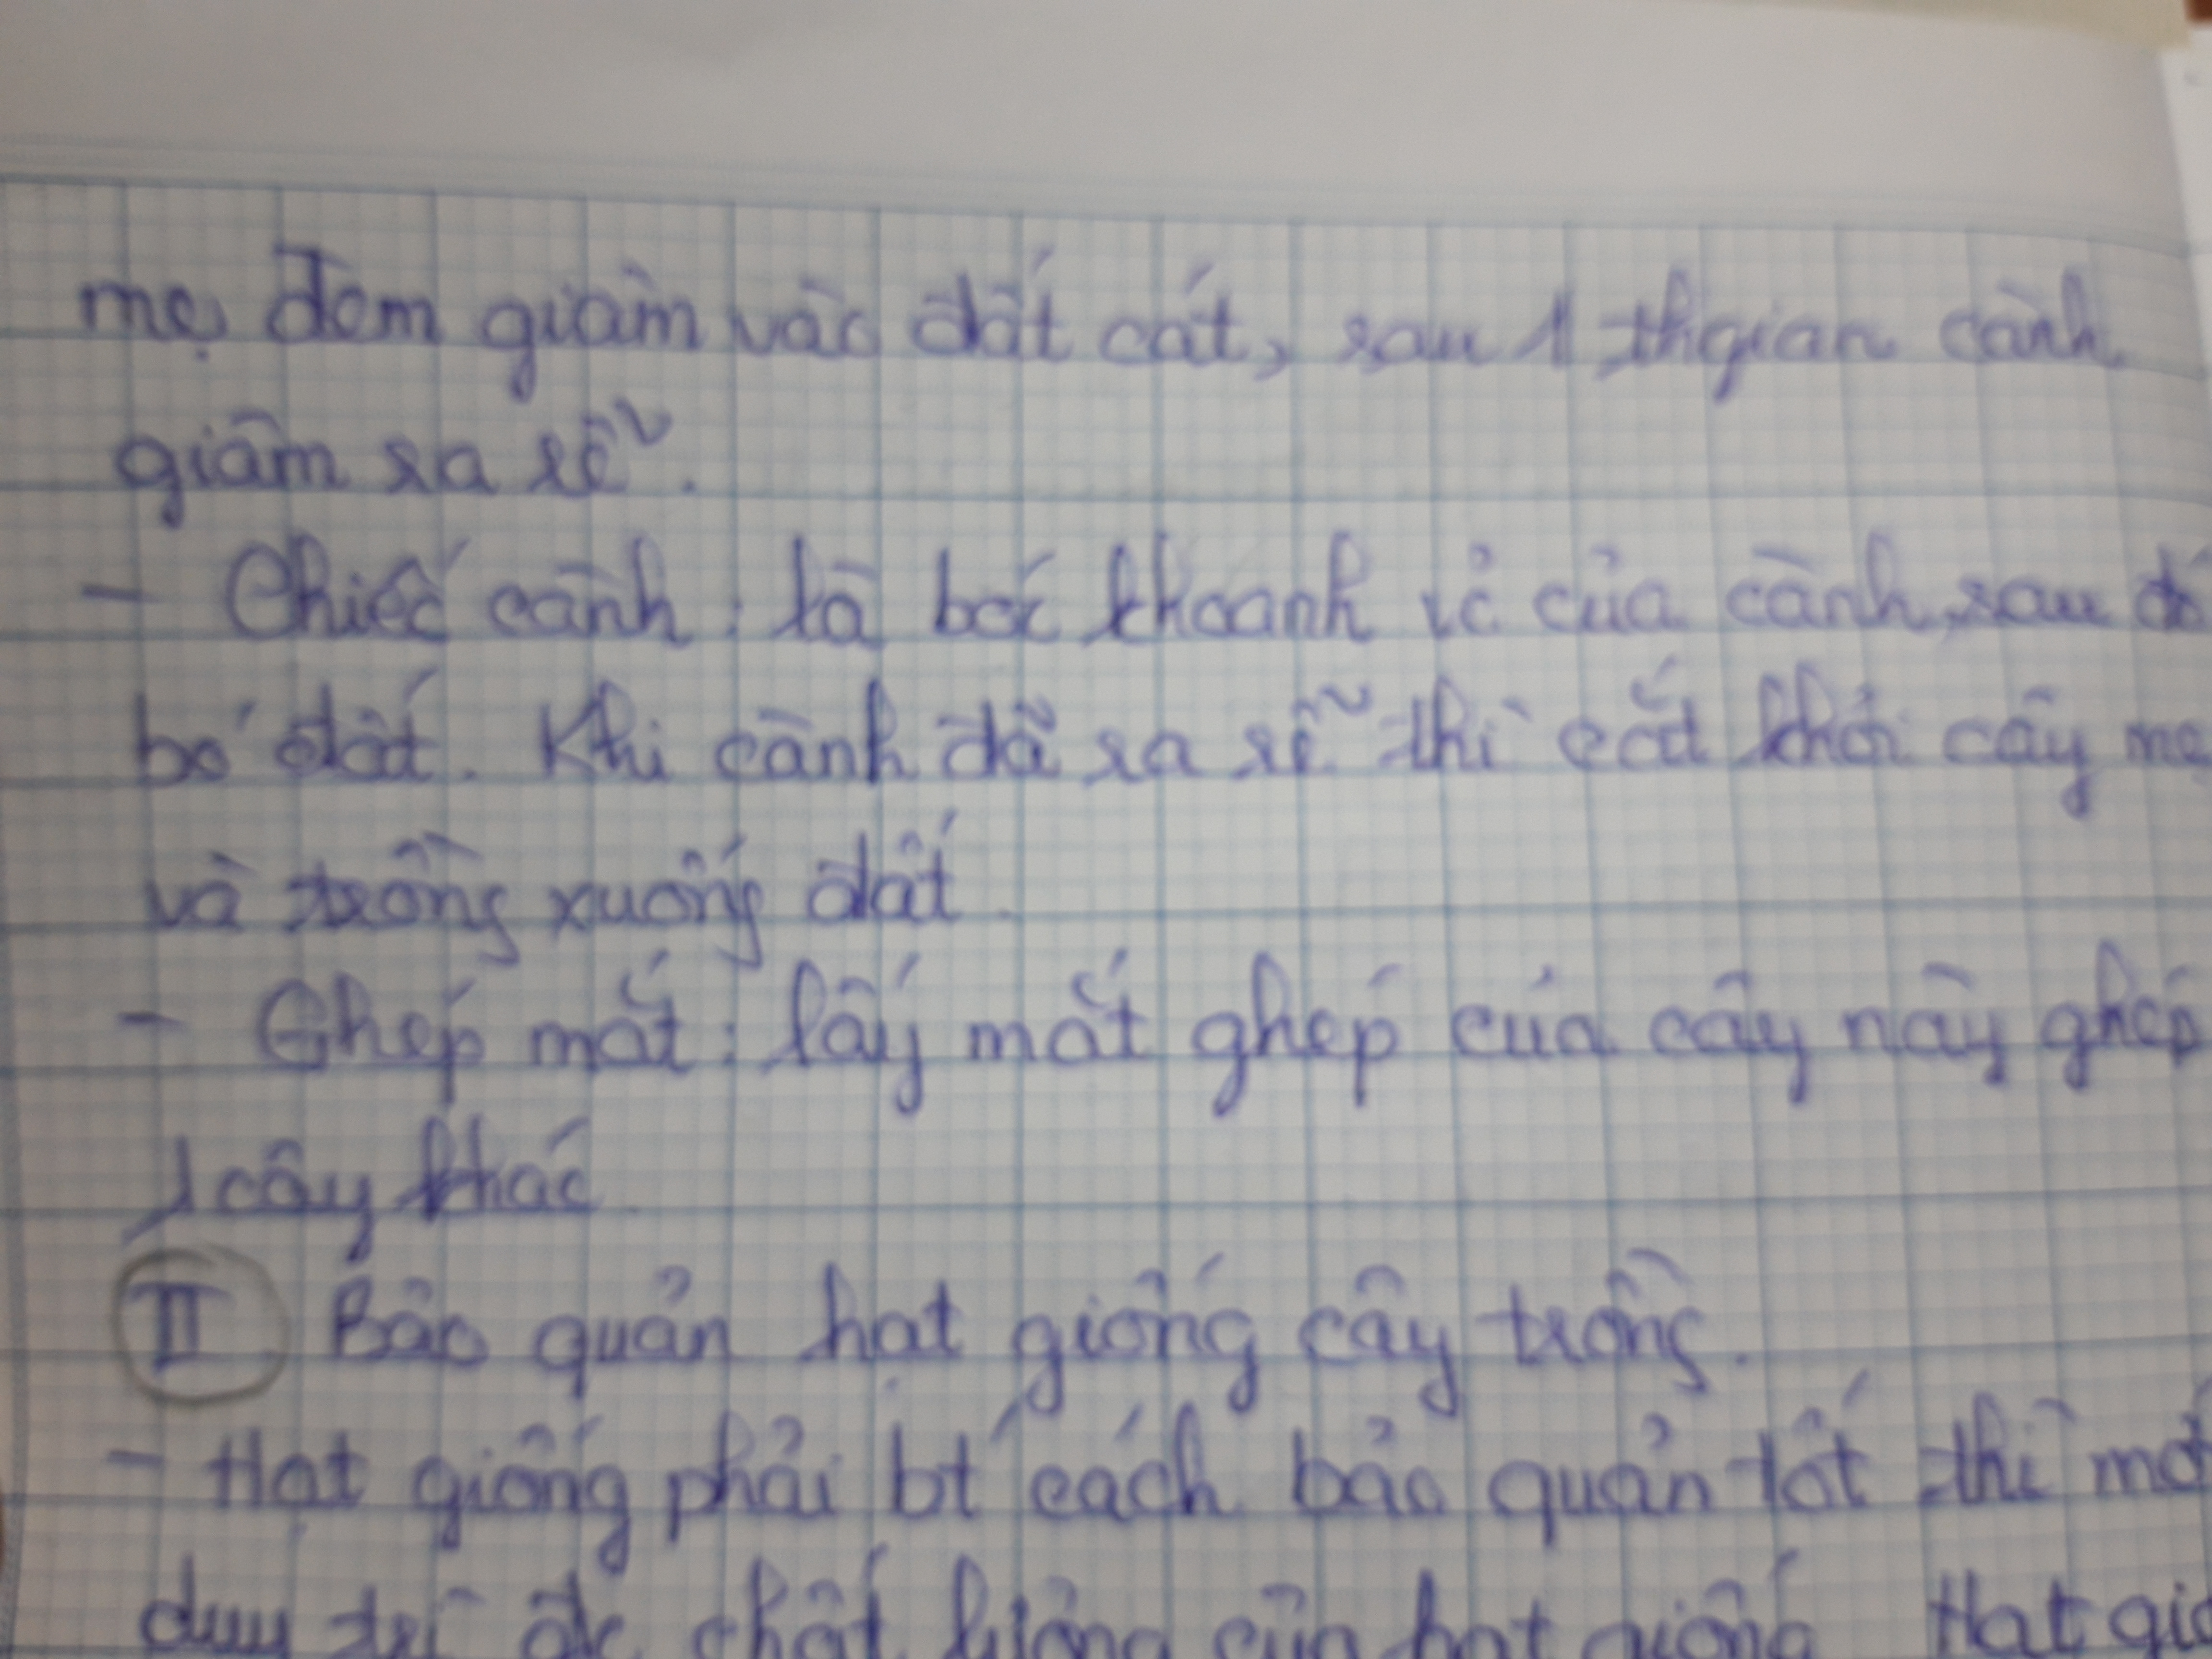 mẹ đem giâm vào đất cát, sau 1 thgian cành
giâm ra rễ.
- Chiếc cành: là bóc khoanh vỏ của cành, sau đó
bó đất. Khi cành đã ra rễ thì cắt khỏi cây mẹ
và trồng xuống đất.
- Ghép mắt: lấy mắt ghép của cây này ghép
cây khác
II Bảo quản hạt giống cây trồng.
- Hạt giống phải bt cách bảo quản tốt thì mới
duy trì đc chất lượng của hạt giống Hạt gi